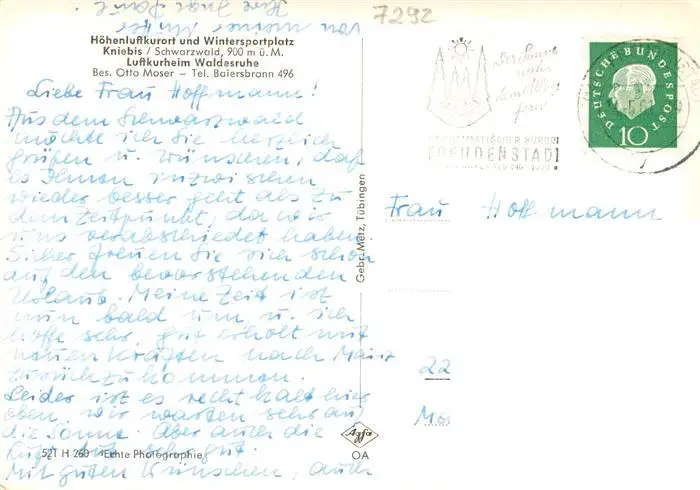 von meiner Mutter
Ihre Inge
7292
Höhenluftkurort und Wintersportplatz
Kniebis / Schwarzwald, 900 m ü. M.
Luftkurheim Waldesruhe
Bes. Otto Moser — Tel. Baiersbronn 496
Liebe Frau Hoffmann!
Aus dem Schwarzwald
möchte ich Sie herzlich
grüßen u. wünschen, daß
es Ihnen inzwischen
wieder besser geht als zu
dem Zeitpunkt, da wir
uns verabschiedet haben.
Sicher freuen Sie sich schon
auf den bevorstehenden
Urlaub. Meine Zeit ist
nun bald um u. ich
hoffe sehr, gut erholt mit
neuen Kräften nach Mainz
zurückzukommen.
Leider ist es recht kalt hier
oben, wir warten sehr auf
die Sonne. Aber auch die
Luft tut sehr gut.
Mit guten Wünschen, auch
521 H 260 Echte Photographie
Gebr. Metz, Tübingen
Agfa
OA
Der Sonne
nah
dem Alltag
fern
HEILKLIMATISCHER KURORT
FREUDENSTADT
DEUTSCHE BUNDESPOST
10
Frau Hoffmann
22